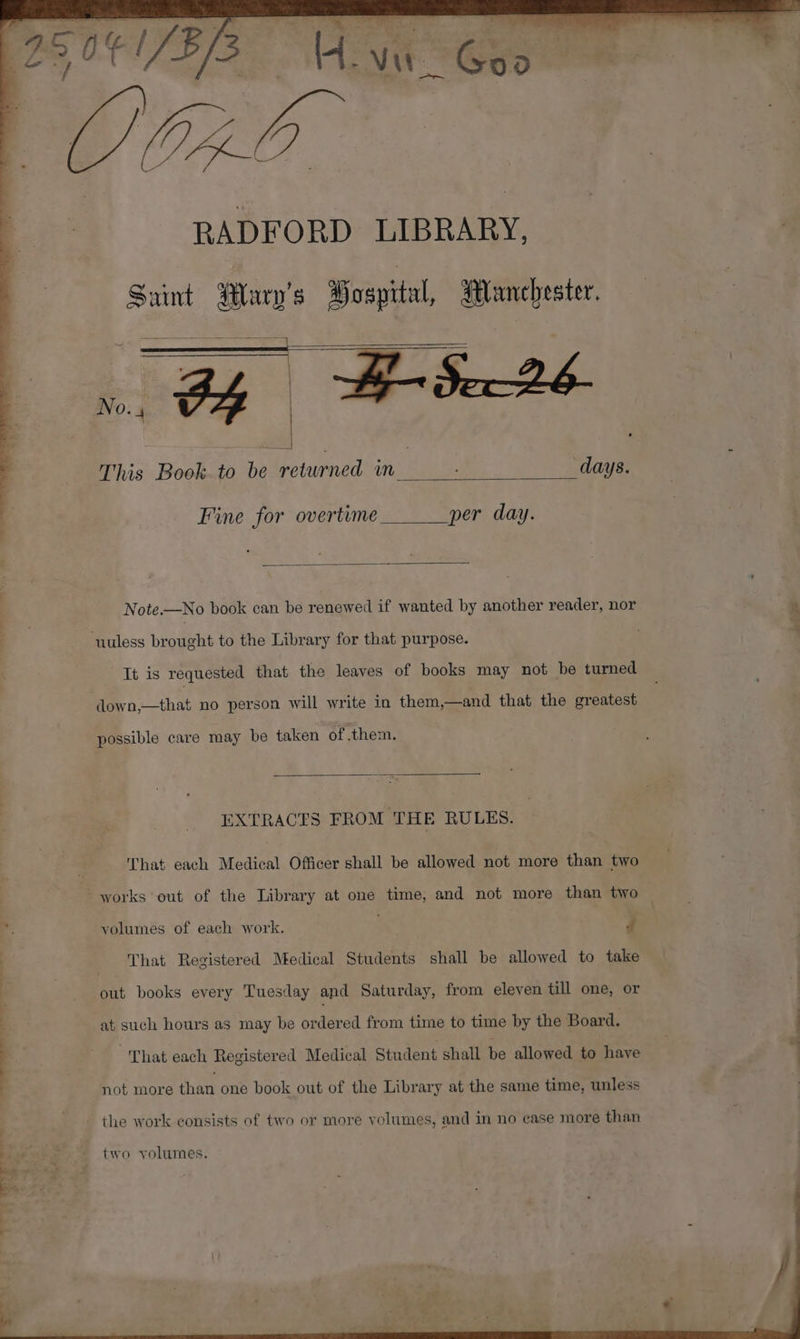 25041/B/3 H. VII. Goo
RADFORD LIBRARY,
Saint Mary's Hospital, Manchester.
No. 34 Sec 26
This Book to be returned in days.
Fine for overtime per day.
Note.—No book can be renewed if wanted by another reader, nor
nuless brought to the Library for that purpose.
It is requested that the leaves of books may not be turned
down,—that no person will write in them,—and that the greatest
possible care may be taken of them.
EXTRACTS FROM THE RULES.
That each Medical Officer shall be allowed not more than two
works out of the Library at one time, and not more than two
volumes of each work.
That Registered Medical Students shall be allowed to take
out books every Tuesday and Saturday, from eleven till one, or
at such hours as may be ordered from time to time by the Board.
That each Registered Medical Student shall be allowed to have
not more than one book out of the Library at the same time, unless
the work consists of two or more volumes, and in no case more than
two volumes.